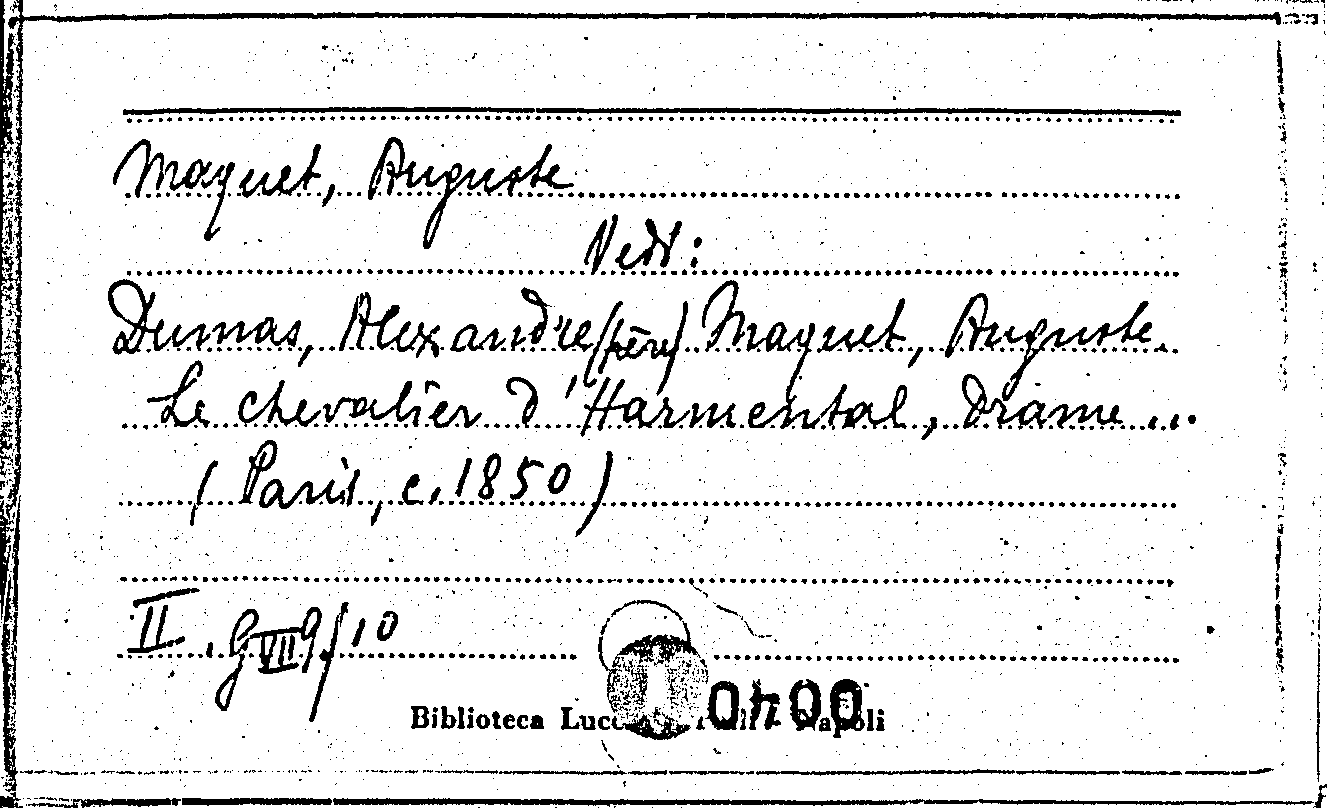 Maquet, Auguste
Vedi:
Dumas, Alexandre (père) Maquet, Auguste.
Le chevalier d'Harmental, drame ...
(Paris, c. 1850)
II. G VII 9/10
0400
Biblioteca Napoli